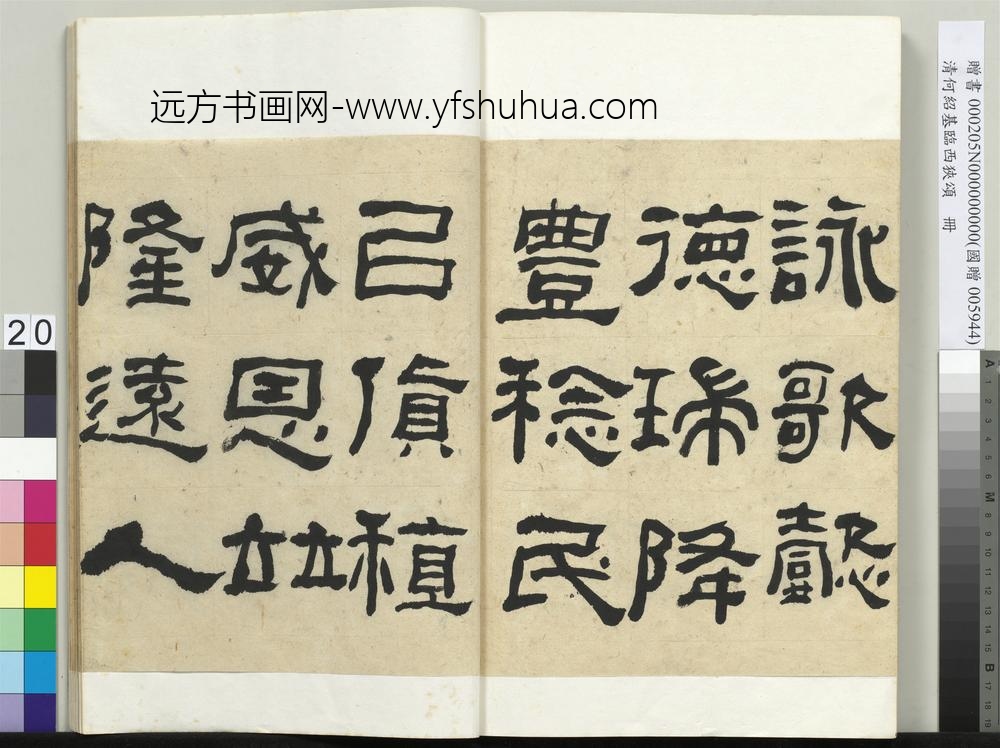 远方书画网-www.yfshuhua.com
詠歌懿
德瑞降
豐稔民
㠯貨稙
威恩竝
隆遠人
贈書 000205N000000000(國贈 005944)
清何紹基臨西狹頌 冊
20
A 1 2 3 4 5 6 M 8 9 10 11 12 13 14 15 B 17 18 19